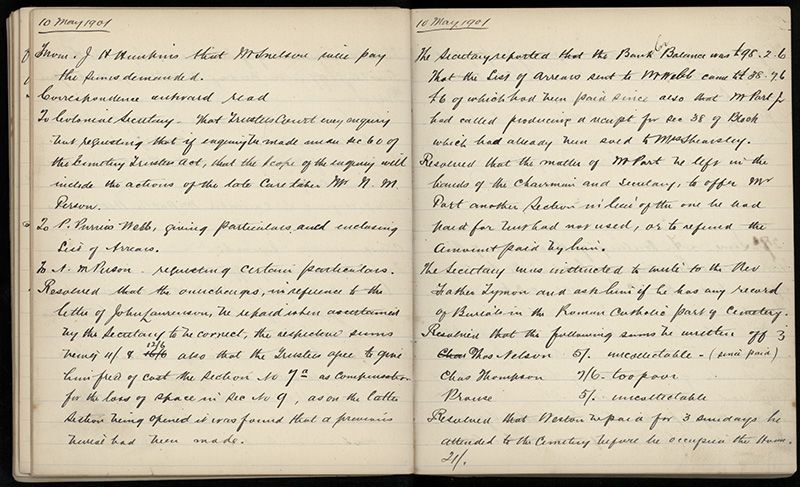 10 May 1901
From J H Hunkins that Mr Snelson will pay
the sums demanded.
Correspondence outward read
To Colonial Secretary - that Trustees Court every enquiry
but requesting that if enquiry be made under sec 60 of
the Cemetery Trustees Act, that the scope of the enquiry will
include the actions of the late Care taker Mr N. M.
Person.
To P. Purvis Webb, giving particulars, and inclosing
List of Arrears.
To N. M Person - requesting certain particulars.
Resolved that the overcharges, in reference to the
letter of John Laurenson, be repaid when ascertained
by the Secretary to be correct, the respective sums
being 11/8 12/6 also that the Trustees agree to give
him free of cost the Section No 7a as compensation
for the loss of space in Sec No 9, as on the latter
Section being opened it was found that a previous
burial had been made.
10 May 1901
The Secretary reported that the Bank Balance was £98.2.6
That the List of Arrears sent to Mr Webb came to £38.7/6
£6 of which had been paid since also that Mr Part
had called producing a receipt for sec 38 g Block
which had already been sold to Mrs Shearsley.
Resolved that the matter of Mr Part be left in the
hands of the Chairman and Secretary, to offer Mr
Part another Section in lieu of the one he had
paid for but had not used, or to refund the
Amount paid by him.
The Secretary was instructed to write to the Rev
Father Tymon and ask him if he has any record
of Burials in the Roman Catholic part of Cemetery.
Resolved that the following sums be written off
Thos Nelson 5/. uncollectable - (since paid)
Chas Thompson 7/6 - too poor
Prouse 5/. uncollectable
Resolved that Weston be paid for 3 sundays he
attended to the Cemetery before he occupied the House.
21/.